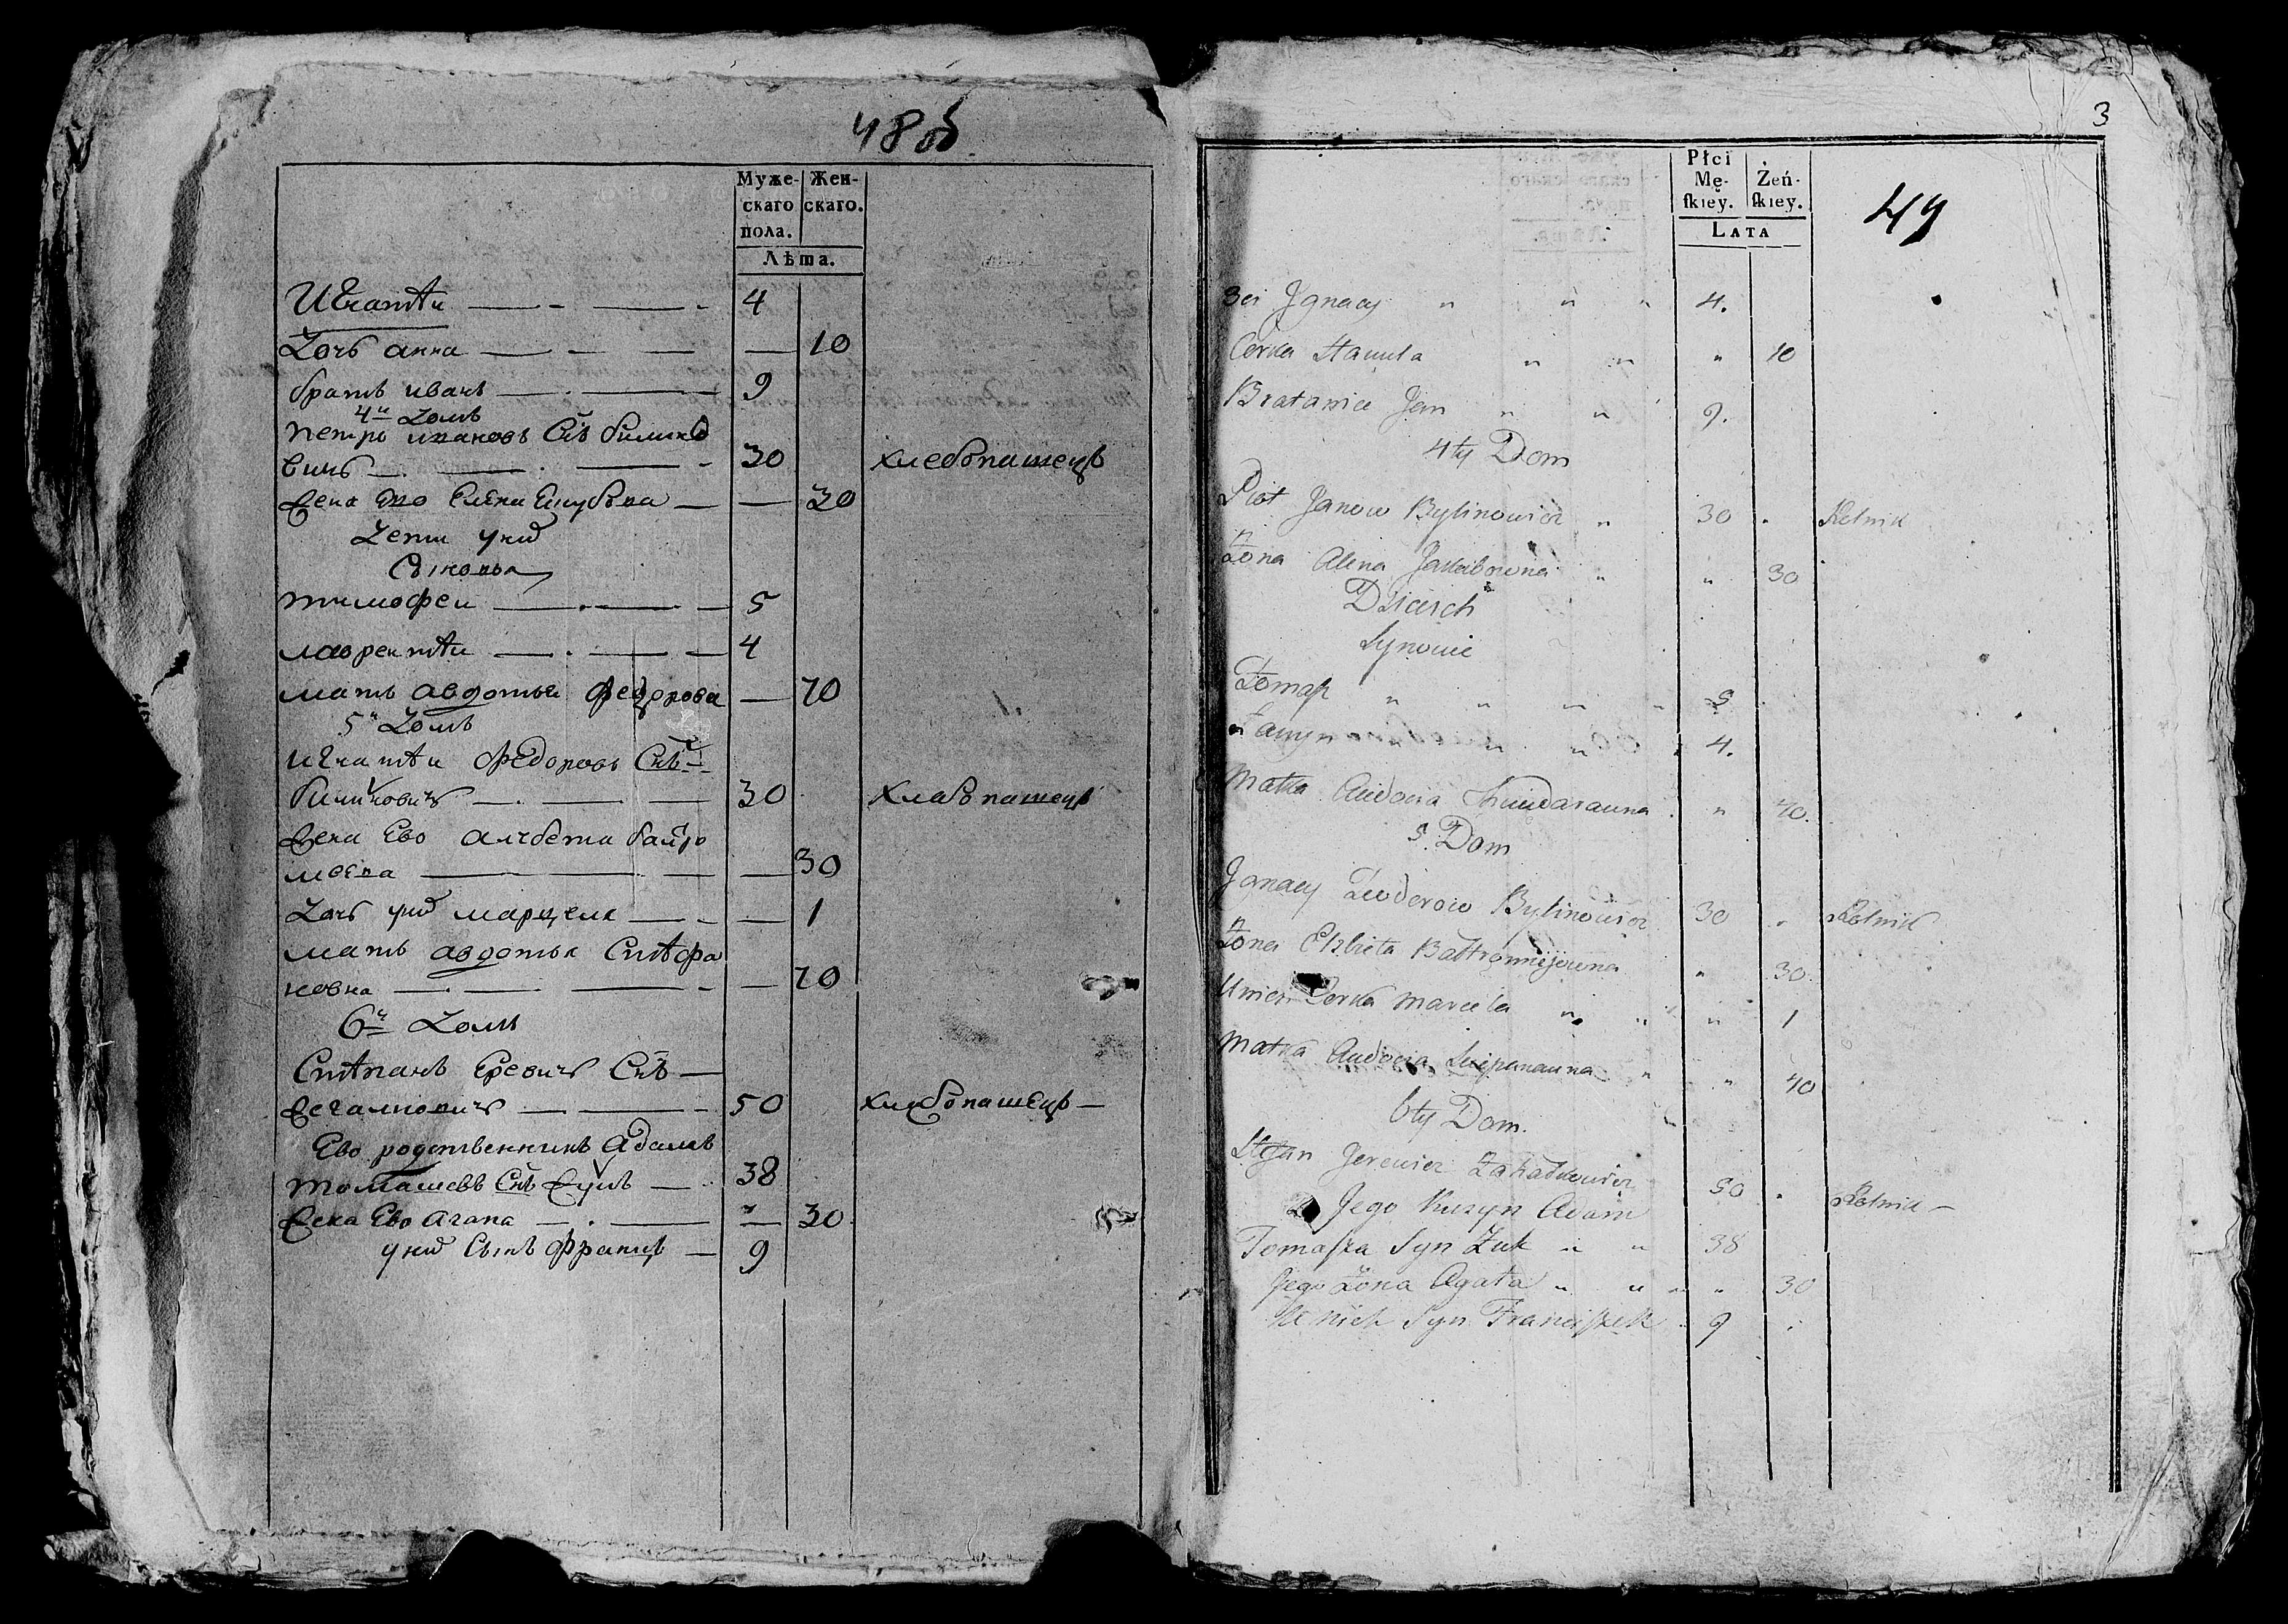 48 об
Муже-
скаго
пола.
Жен-
скаго.
Лѣта.
Игнатѣи 4
Дочь анна — 10
братъ иванъ 9
4й Домъ
петръ ивановъ Снъ билино
вичъ 30 хлебопашецъ
Жена Ево Елена Екубвна — 30
Дети унихъ
Сыновья
тимофеи 5
лаврентѣи 4
мать авдотья федорова — 70
5й Домъ
игнатѣи федоровъ Снъ
билиновичъ 30 хлебопашецъ
Жена Ево алчбета балтро
меевна — 30
Дочь унихъ марцеля — 1
мать авдотья Стѣфа
новна — 70
6й Домъ
Стѣпанъ Еревичъ Снъ
50 хлебопашецъ
Ево родственникъ адамъ
томашевъ Снъ Жукъ 38
Жена Ево агапа — 30
унихъ Сынъ францъ 9
3
Płci
Mę-
ſkiey.
Żeń-
ſkiey.
Lata
49
3ci Jgnacy " " " 4.
Corka " " " 10
Bratanica Jan " " 9.
4ty Dom
Piot Janow Bylinowicz " 30 " Rolnik
Żona Alena Jakubowna " " 30
Dziech
Synowie
" " " " 5
" " " 4.
Matka Audocia " 40.
5. Dom
Jgnacy Teoderow Bylinowicz 30 " Rolnik
Żona Elzbieta Bałtromiejowna " 30.
Unich Corka Marcela " " " 1
Matka Audocia Sciepanauna " " 40
6ty Dom.
Stefan Jerewicz 50 " Rolnik —
Jego Kuzyn Adam
Tomaſza Syn Żuk " " 38
Jego Żona Agata " " " " 30
U nich Syn Franciſzek " 9